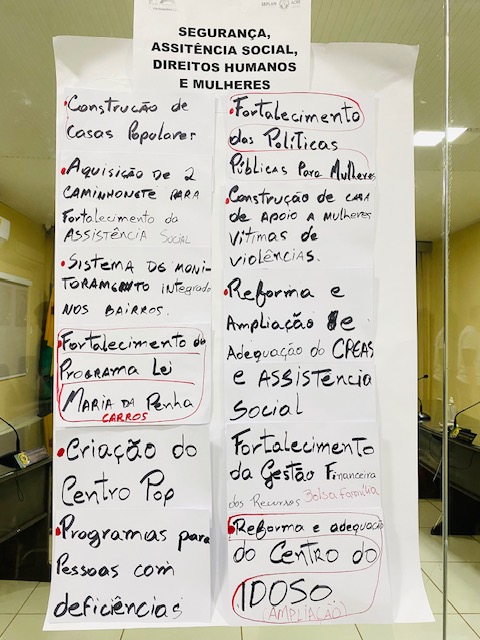 SEGURANÇA,
ASSITÊNCIA SOCIAL,
DIREITOS HUMANOS
E MULHERES
Construção de
casas Populares
Aquisição de 2
CAMINHONETE PARA
Fortalecimento da
ASSISTÊNCIA SOCIAL
SISTEMA DE MONI-
TORAMENTO integrado
NOS BAIRROS.
Fortalecimento do
Programa Lei
MARIA DA Penha
CARROS
Criação do
Centro Pop
Programas para
Pessoas com
deficiências
Fortalecimento
das Políticas
Públicas Para Mulheres
Construção de CASA
de Apoio A mulheres
Vítimas de
violências.
Reforma e
Ampliação e
Adequação do CREAS
e ASSISTENCIA
Social
Fortalecimento
da Gestão Financeira
dos Recursos Bolsa Família
Reforma e adequação
do Centro do
IDOSO.
(AMPLIAÇÃO)